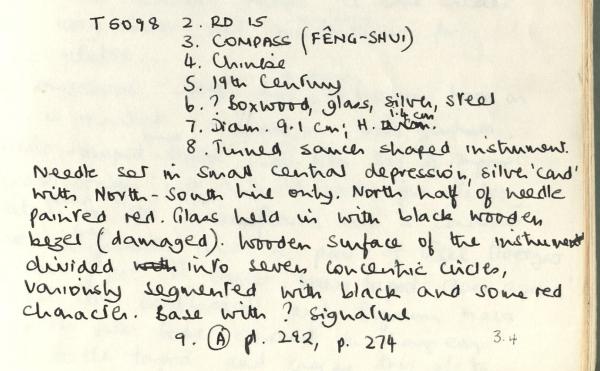 T5098 2. RD 15
3. COMPASS (FÊNG-SHUI)
4. Chinese
5. 19th Century
6. ? Boxwood, glass, silver, steel
7. Diam. 9.1 cm; H. 1.4 cm
8. Turned saucer shaped instrument.
Needle set in small central depression, silver 'card'
with North-South line only. North half of needle
painted red. Glass held in with black wooden
bezel (damaged). Wooden surface of the instrument
divided into seven concentric circles,
variously segmented with black and some red
character. Base with ? Signature
9. Ⓐ pl. 292, p. 274 3.4